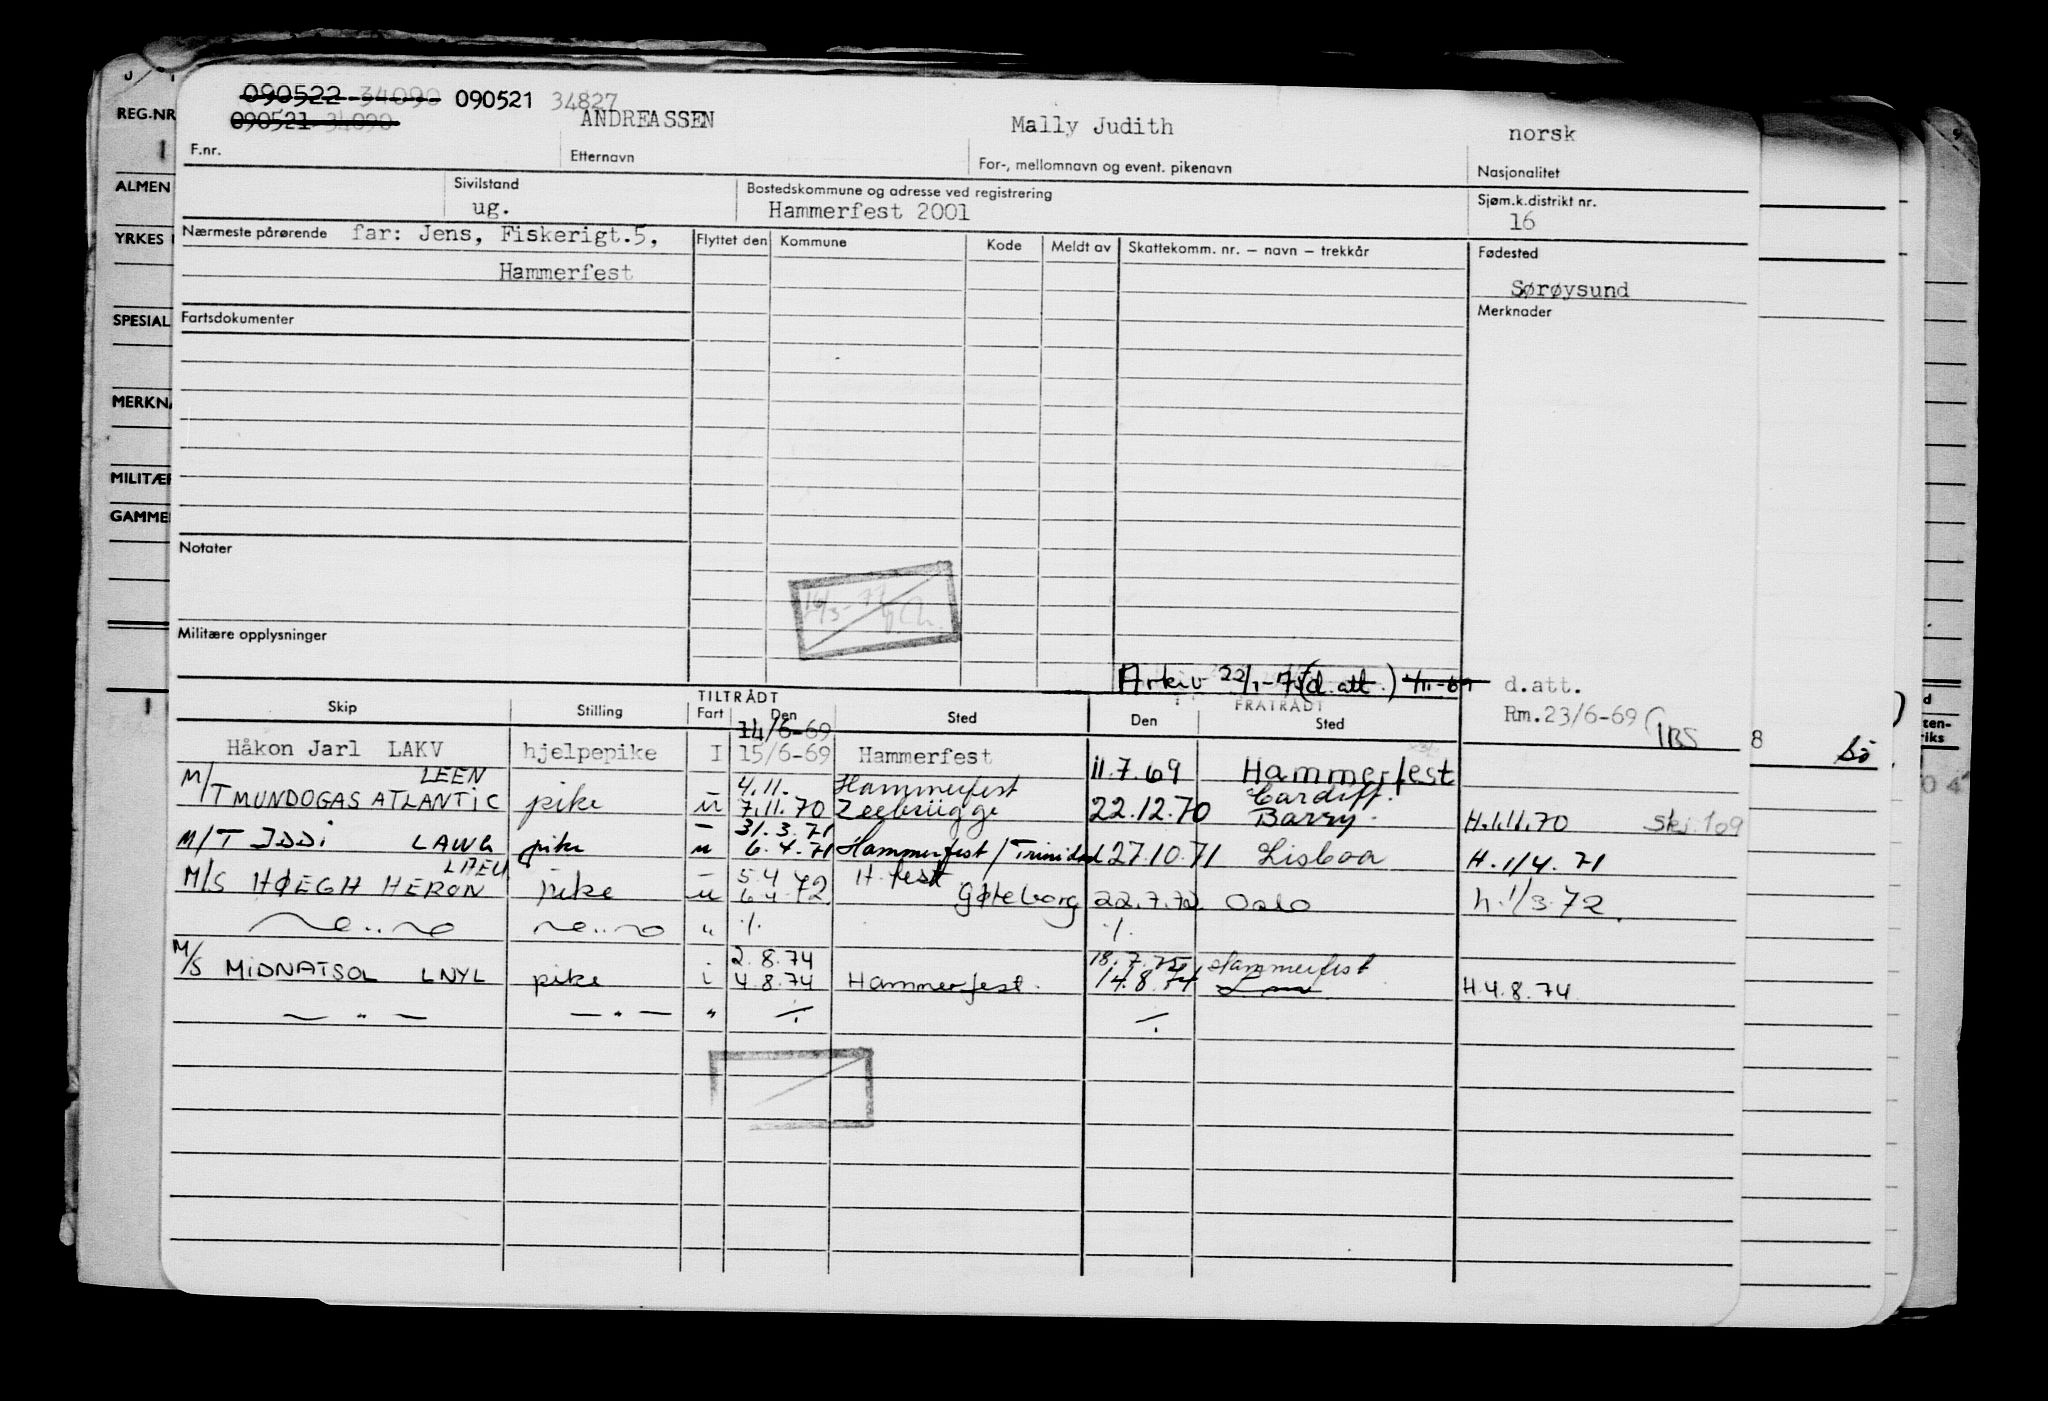 090522 34090 090521 34827
090521 34090
ANDREASSEN Mally Judith norsk
F.nr. Etternavn For-, mellomnavn og event. pikenavn Nasjonalitet
Sivilstand Bostedskommune og adresse ved registrering Sjøm.k.distrikt nr.
ug. Hammerfest 2001 16
Nærmeste pårørende far: Jens, Fiskerigt.5, Flyttet den Kommune Kode Meldt av Skattekomm. nr. – navn – trekkår Fødested
Hammerfest Sørøysund
Fartsdokumenter Merknader
Notater
Militære opplysninger
Arkiv 22/1-75 (d.att.) 4/11-69 d.att.
TILTRÅDT FRATRÅDT Rm.23/6-69
Skip Stilling Fart Den Sted Den Sted
14/6-69
Håkon Jarl LAKV hjelpepike I 15/6-69 Hammerfest 11.7.69 Hammerfest
LEEN 4.11. Hammerfest Cardiff.
M/T MUNDOGAS ATLANTIC pike u 7.11.70 Zeebrügge 22.12.70 Barry. H.1.11.70 Skj.109
31.3.71
M/T IDDI LAWG pike u 6.4.71 Hammerfest/Trinidad 27.10.71 Lisboa H.1/4.71
5.4 H.fest
M/S HØEGH HERON pike u 6.4.72 Gøteborg 22.7.72 Oslo h.1/3.72.
" ·/· ·/·
2.8.74 18.7.75 Hammerfest
M/S MIDNATSOL LNYL pike i 4.8.74 Hammerfest. 14.8.74 H.4.8.74
— " — — " — " ÷ ÷
REG.NR
ALMEN
YRKES
SPESIAL
MERKNA
MILITÆR
GAMME
8